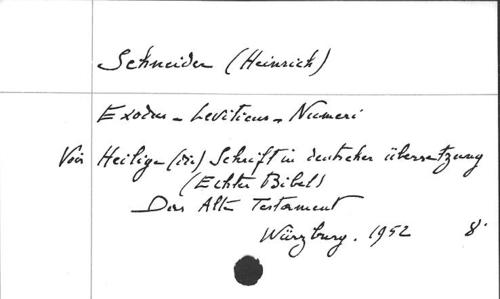 Schneider (Heinrich)
Exodus - Leviticus - Numeri
Voir Heilige (die) Schrift in deutscher übersetzung
(Echter Bibel)
Das Alte Testament
Würzburg. 1952 8°